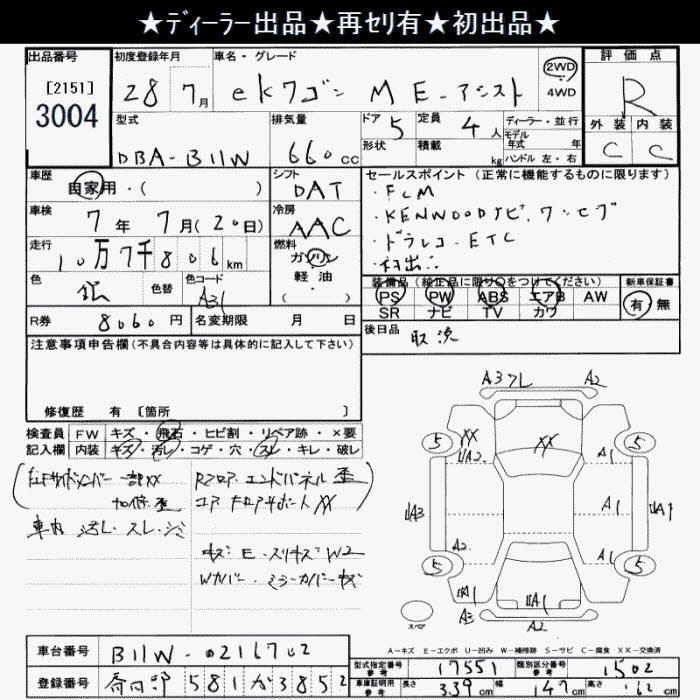 ★ディーラー出品★再セリ有★初出品★
出品番号 初度登録年月 車名・グレード 評価点
[2151] 28 7月 eKワゴン M E-アシスト 2WD R
3004 4WD
型式 排気量 ドア 5 定員 4人 ディーラー・並行 外装 内装
モデル
年式 年
DBA-B11W 660cc 形状 積載 kg ハンドル 左・右 C C
車歴 シフト セールスポイント(正常に機能するものに限ります)
自家用・( ) DAT ・FCM
車検 7年 7月(20日) 冷房 AAC ・KENWOODナビ,ワンセグ
走行 燃料 ・ドラレコ-ETC
10万7千806km ガソリン
色 銀 色替 色コード A31 軽・油
( )
装備品(純正品に限り○をつけてください) 新車保証書
PS PW ABS エアB AW 有 無
SR ナビ TV カワ
R券 8060円 名変期限 月 日 後日品 取説
注意事項申告欄(不具合内容等は具体的に記入して下さい)
修復歴 有 [箇所 ]
検査員 FW キズ・飛石・ヒビ割・リペア跡・×要
記入欄 内装 キズ・汚レ・コゲ・穴・スレ・キレ・破レ
Rフロア エンドパネル 歪
XX
車内 汚レ スレ
キズ E スリキズ W2
Wカバー ミラーカバー キズ
A3 A2
5 XX XX 5
UA2 A1
UA3 A1 UA1
A2 A1
5 5
UA1 UA1
A3 A2
スペア
A-キズ E-エクボ U-凹み W-補修跡 S-サビ C-腐食 XX-交換済
車台番号 B11W-0216702 型式指定番号 参考 17551 類別区分番号 参考 1502
登録番号 581か3852 車庫証明用 参考 長さ 339cm 幅 147cm 高さ 162cm